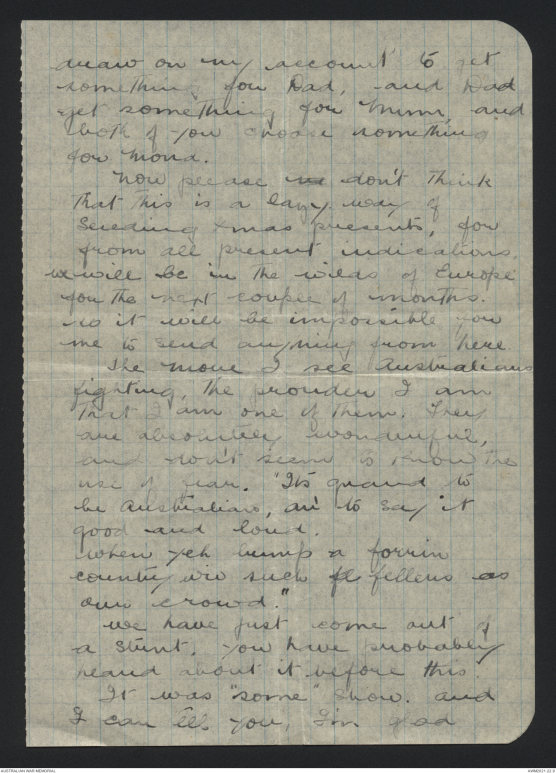 draw on my account to get
something for Dad, and Dad
get something for Mum, and
both of you choose something
for Mond.
Now please don't think
that this is a lazy way of
sending Xmas presents, for
from all present indications,
we will be in the wilds of Europe
for the next couple of months.
so it will be impossible for
me to send anything from here
The more I see Australians
fighting, the prouder I am
that I am one of them. They
are absolutely wonderful,
and don't seem to know the
use of fear. "Its grand to
be Australian, an' to say it
good and loud.
When yeh bump a forrin
country wiv such fellers as
our crowd."
We have just come out of
a stunt. you have probably
heard about it before this.
It was "some" show. and
I can tell you, I'm glad
AUSTRALIAN WAR MEMORIAL